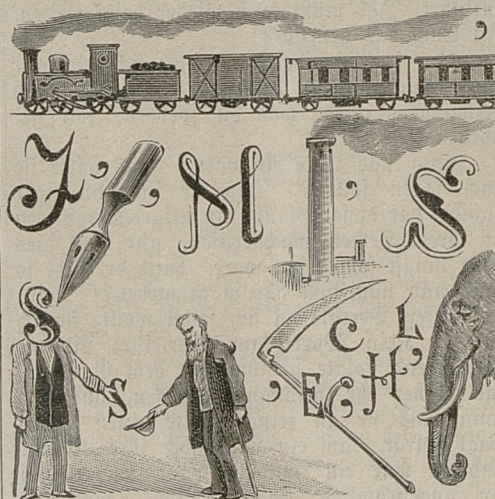 ,
J , , M , S
S
S
C L
, E C H ,